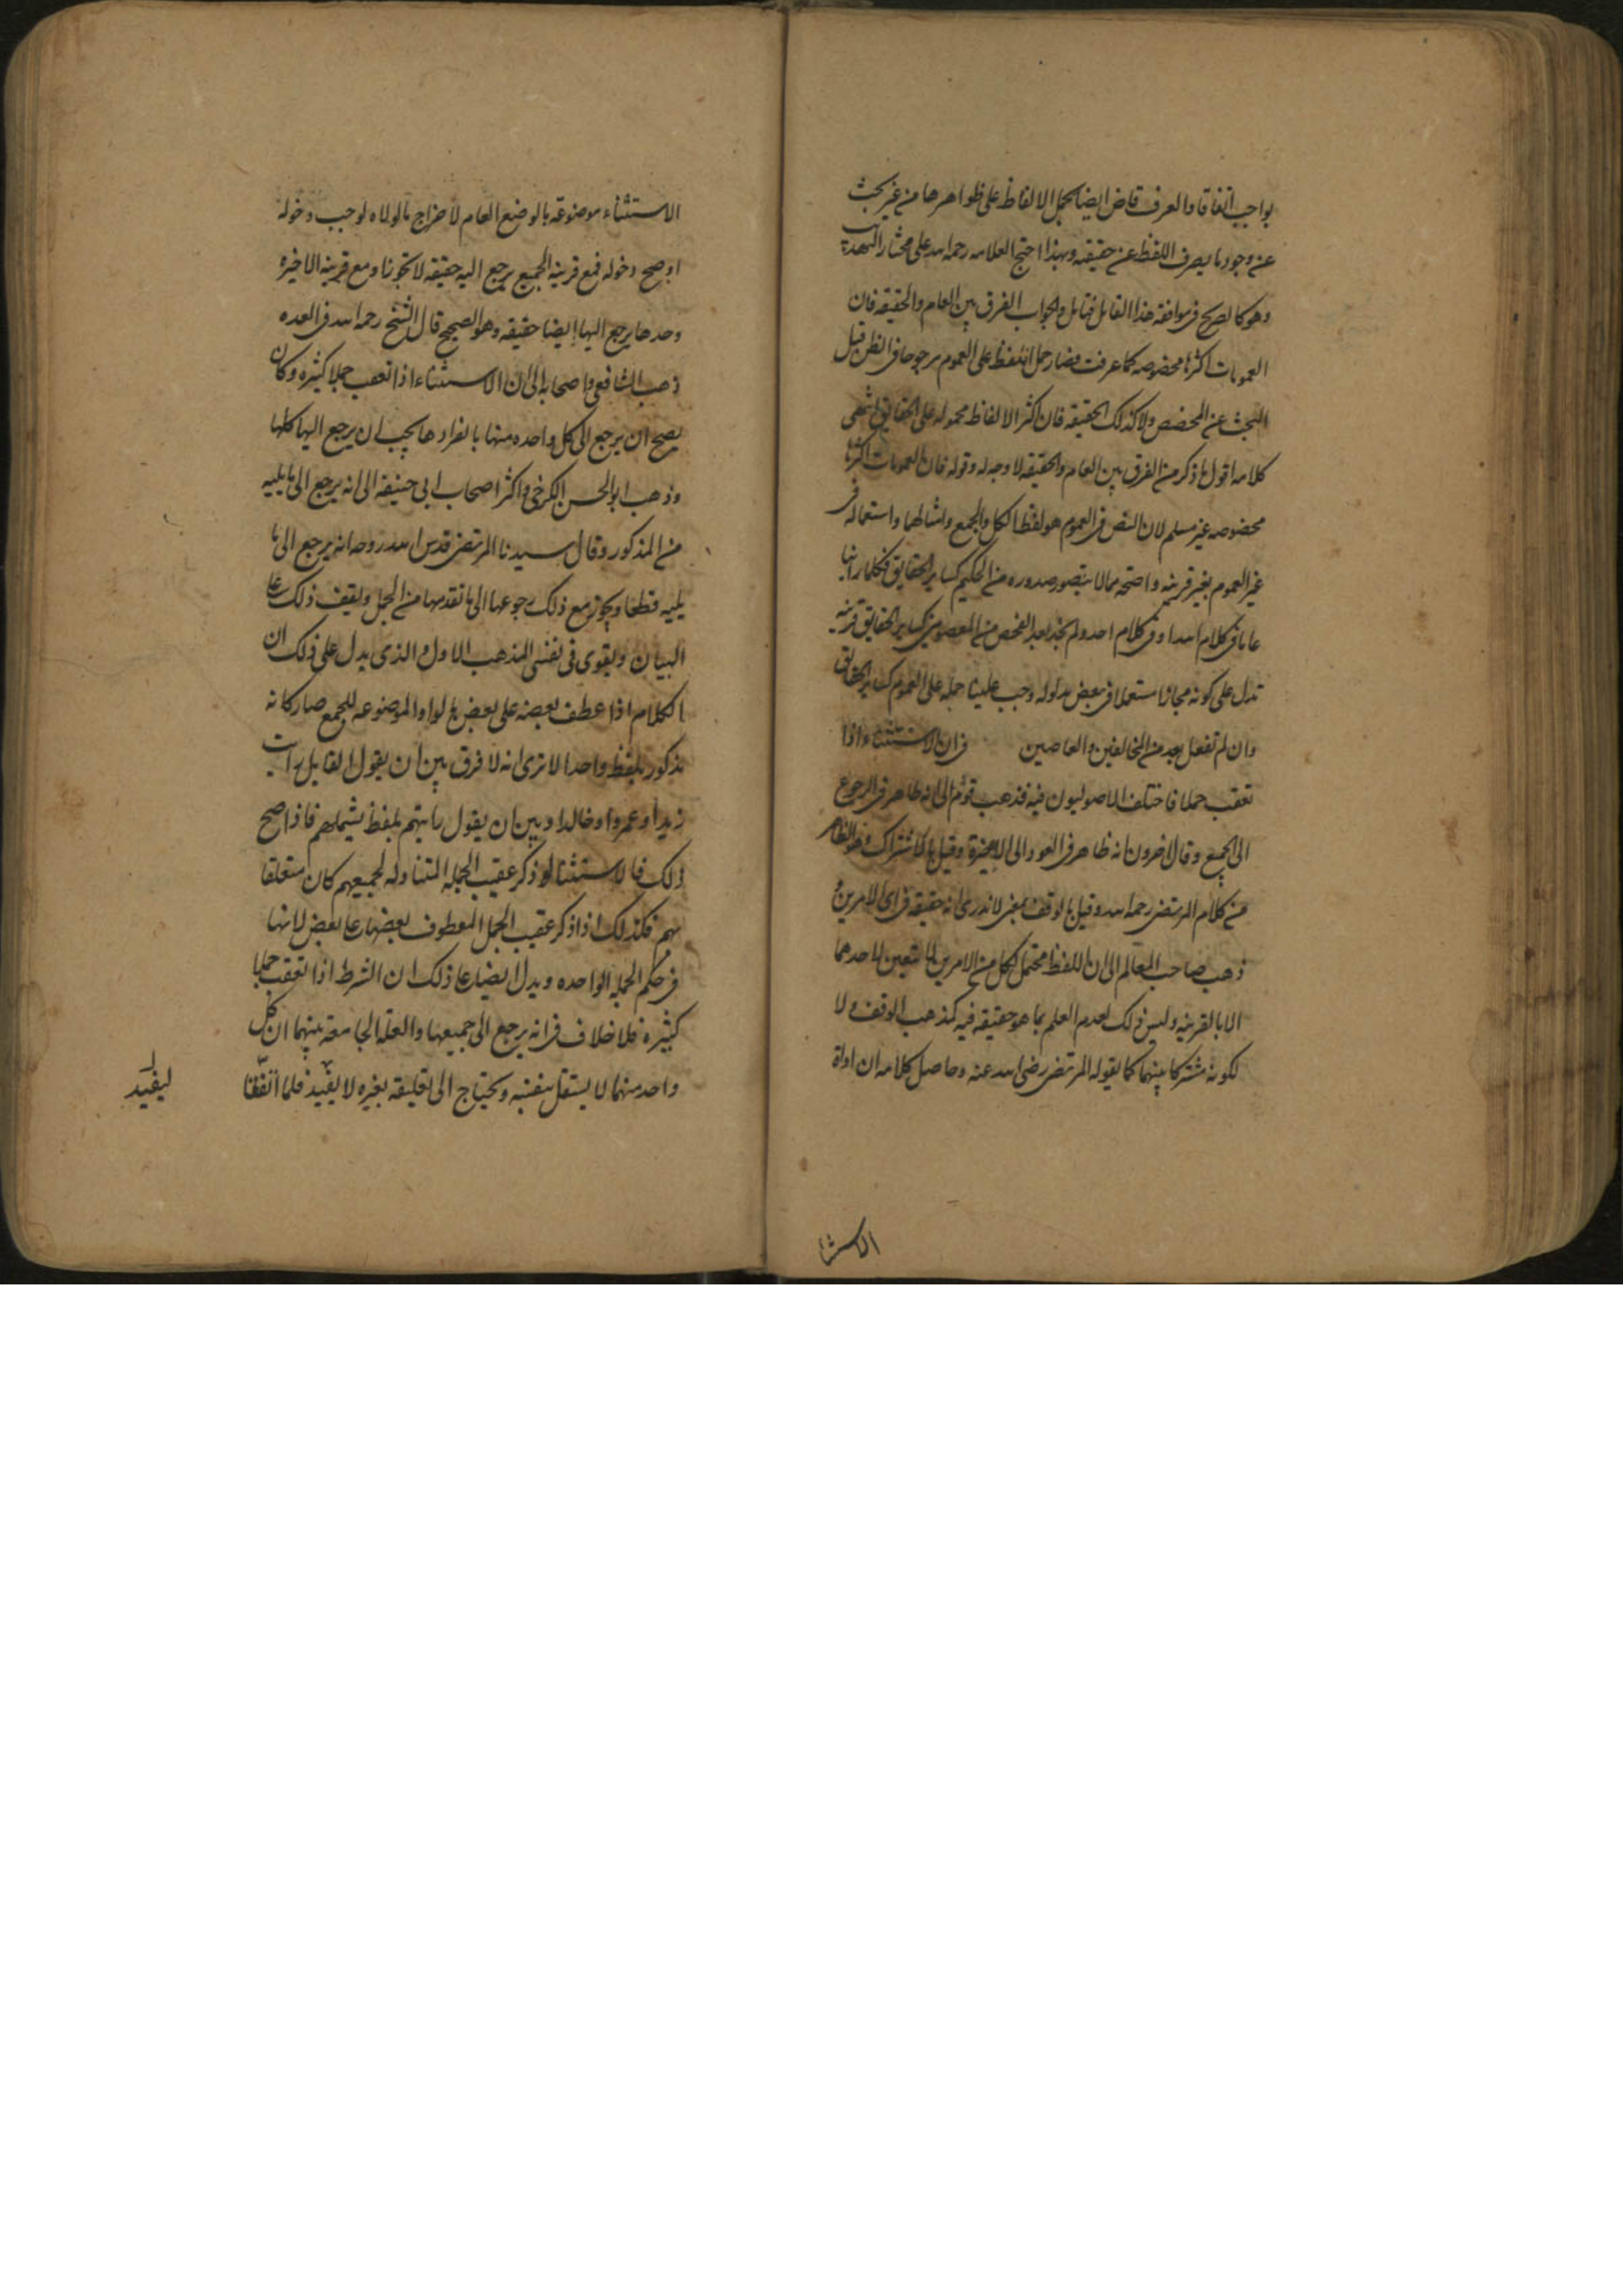 بواجب اتفاقا والعرف قاض ايضا بحمل الالفاظ على ظواهرها من غير بحث
عن وجود ما يصرف اللفظ عن حقيقته وبهذا احتج العلامه رحمه الله على مختار التهذيب
وهو كالصريح فى موافقة هذا القائل فتامل والجواب الفرق بين العام والحقيقه فان
العمومات اكثرها مخصوصه كما عرفت فصار حمل اللفظ على العموم مرجوحا فى الظن قبل
البحث عن المخصص ولا كذلك الحقيقه فان اكثر الالفاظ محموله على الحقايق انتهى
كلامه اقول ما ذكر من الفرق بين العام والحقيقه لا وجه له وقوله فان العمومات اكثرها
مخصوصه غير مسلم لان النص فى العموم هو لفظ الكل والجمع وامثالهما واستعماله فى
غير العموم بغير قرينه واضحه مما لا يتصور صدوره من الحكيم كساير الحقايق فكلما راينا
عاما فى كلام الله او فى كلام احد ولم نجد بعد الفحص من المعصومين كساير الحقايق قرينه
تدل على كونه مجازا مستعملا فى بعض مدلوله وجب علينا حمله على العموم كساير الحقايق
وان لم تفعل بعد من المخالفين والعاصين فى ان الاستثناء اذا
تعقب جملا فاختلف الاصوليون فيه فذهب قوم الى انه ظاهر فى الرجوع
الى الجميع وقال اخرون انه ظاهر فى العود الى الاخيرة وقيل بالاشتراك وهو الظاهر
من كلام المرتضى رحمه الله وقيل بالوقف بمعنى لا ندرى انه حقيقه فى اى الامرين و
ذهب صاحب المعالم الى ان اللفظ محتمل لكل من الامرين لا يتعين لاحدهما
الا بالقرينه وليس ذلك لعدم العلم بما هو حقيقه فيه كمذهب الوقف ولا
لكونه مشتركا بينهما كما يقوله المرتضى رضى الله عنه وحاصل كلامه ان اداة
الاستثنا
الاستثناء موضوعة بالوضع العام لاخراج ما لولاه لوجب دخوله
او صح دخوله فمع قرينة الجميع يرجع اليه حقيقه لا تجوزا ومع قرينة الاخيره
وحدها يرجع اليها ايضا حقيقه وهو الصحيح قال الشيخ رحمه الله فى العده
ذهب الشافعى واصحابه الى ان الاستثناء اذا تعقب جملا كثيره وكان
يصح ان يرجع الى كل واحده منها بانفرادها يجب ان يرجع اليها كلها
وذهب ابو الحسن الكرخى واكثر اصحاب ابى حنيفه الى انه يرجع الى ما يليه
من المذكور وقال سيدنا المرتضى قدس الله روحه انه يرجع الى ما
يليه قطعا ويجوز مع ذلك رجوعها الى ما تقدمها من الجمل ويقف ذلك على
البيان ويقوى فى نفسى المذهب الاول والذى يدل على ذلك ان
الكلام اذا عطف بعضه على بعض بالواو الموضوعه للجمع صار كانه
مذكور بلفظ واحد الا ترى انه لا فرق بين ان يقول القايل رايت
زيدا وعمروا وخالدا وبين ان يقول رايتهم بلفظ يشملهم فاذا صح
ذلك فالاستثنا لو ذكر عقيب الجمله المتناوله لجميعهم كان متعلقا
بهم فكذلك اذا ذكر عقيب الجمل المعطوف بعضها على بعض لانها
فى حكم الجمله الواحده ويدل ايضا على ذلك ان الشرط اذا تعقب جملا
كثيرة فلا خلاف فى انه يرجع الى جميعها والعلة الجامعة بينهما ان كل
واحد منهما لا يستقل بنفسه ويحتاج الى تعليقه بغيره لا يفيد فلما اتفقا
ليفيد